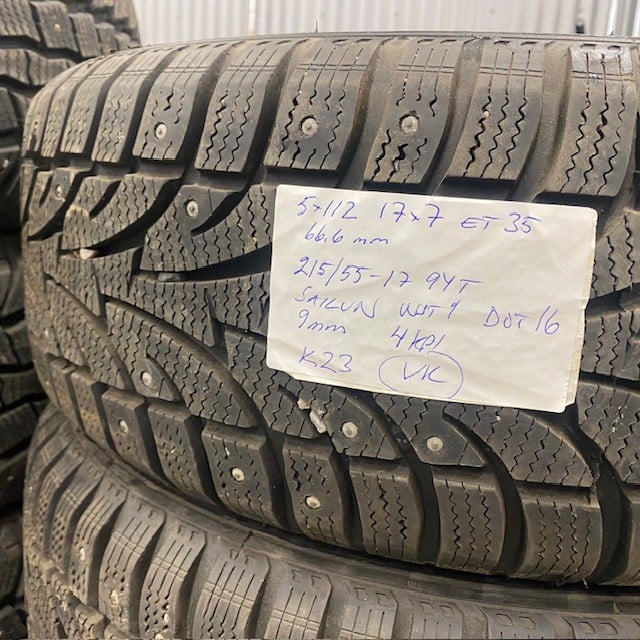 5x112 17x7 ET 35
66.6 mm
215/55-17 94T
SAILUN WST1 DOT16
9mm 4 kpl
K23 VK